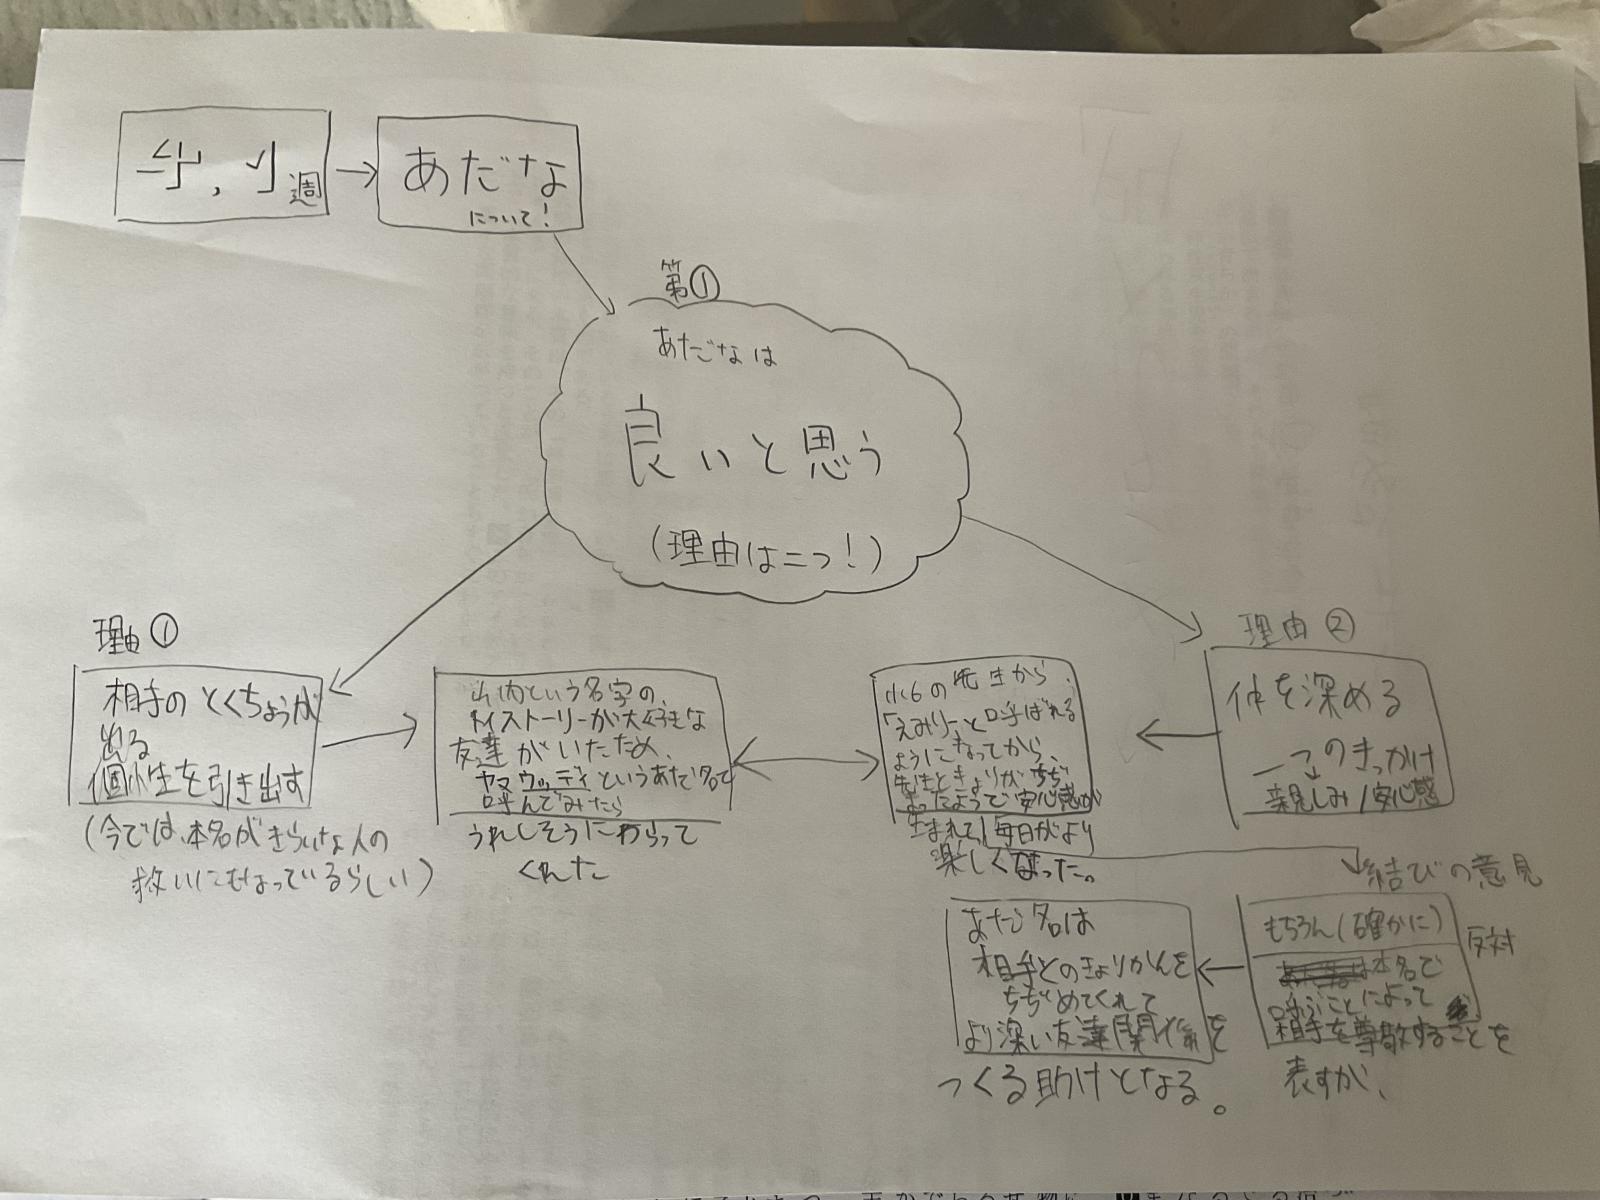 週
あだな
について!
第①
あだなは
良いと思う
(理由は二つ!)
理由①
相手のとくちょうが
出る
個性を引き出す
(今では、本名がきらいな人の
救いにもなっているらしい)
山内という名字の、
トイストーリーが大好きな
友達がいたため、
ヤマウッディというあだ名で
呼んでみたら
うれしそうにわらって
くれた
小6の先生から、
「えみりー」と呼ばれる
ようになってから、
先生ときょりがちぢ
まったようで安心感が
生まれて、毎日がより
楽しくなった。
理由②
仲を深める
一つのきっかけ
親しみ/安心感
結びの意見
もちろん(確かに)
反対
本名で
呼ぶことによって
相手を尊敬することを
表すが、
あだ名は
相手とのきょりかんを
ちぢめてくれて
より深い友達関係を
つくる助けとなる。